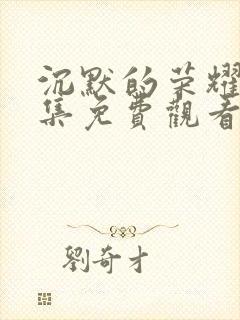 沉默的荣耀
集免費觀看
劉奇才